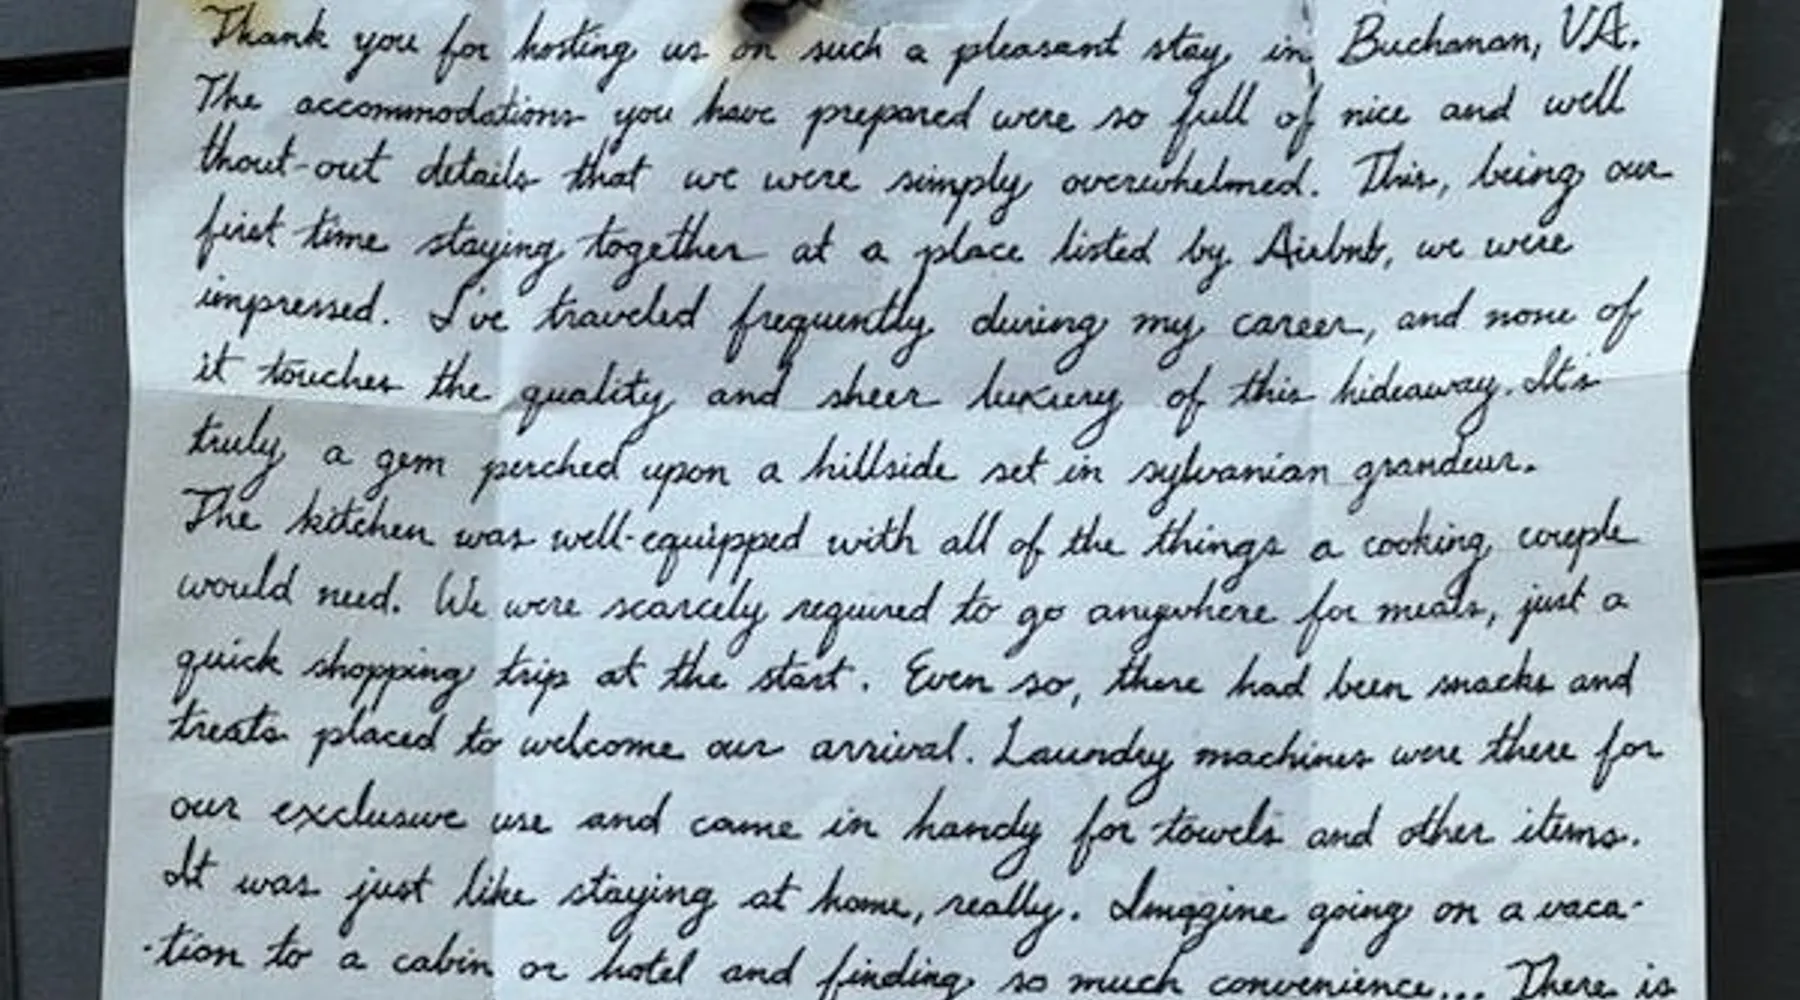 Thank you for hosting us on such a pleasant stay in Buchanan, VA.
The accommodations you have prepared were so full of nice and well
thout-out details that we were simply overwhelmed. This, being our
first time staying together at a place listed by Airbnb, we were
impressed. I've traveled frequently during my career, and none of
it touches the quality and sheer luxury of this hideaway. It's
truly a gem perched upon a hillside set in sylvanian grandeur.
The kitchen was well-equipped with all of the things a cooking couple
would need. We were scarcely required to go anywhere for meals, just a
quick shopping trip at the start. Even so, there had been snacks and
treats placed to welcome our arrival. Laundry machines were there for
our exclusive use and came in handy for towels and other items.
It was just like staying at home, really. Imagine going on a vaca-
-tion to a cabin or hotel and finding so much convenience... There is